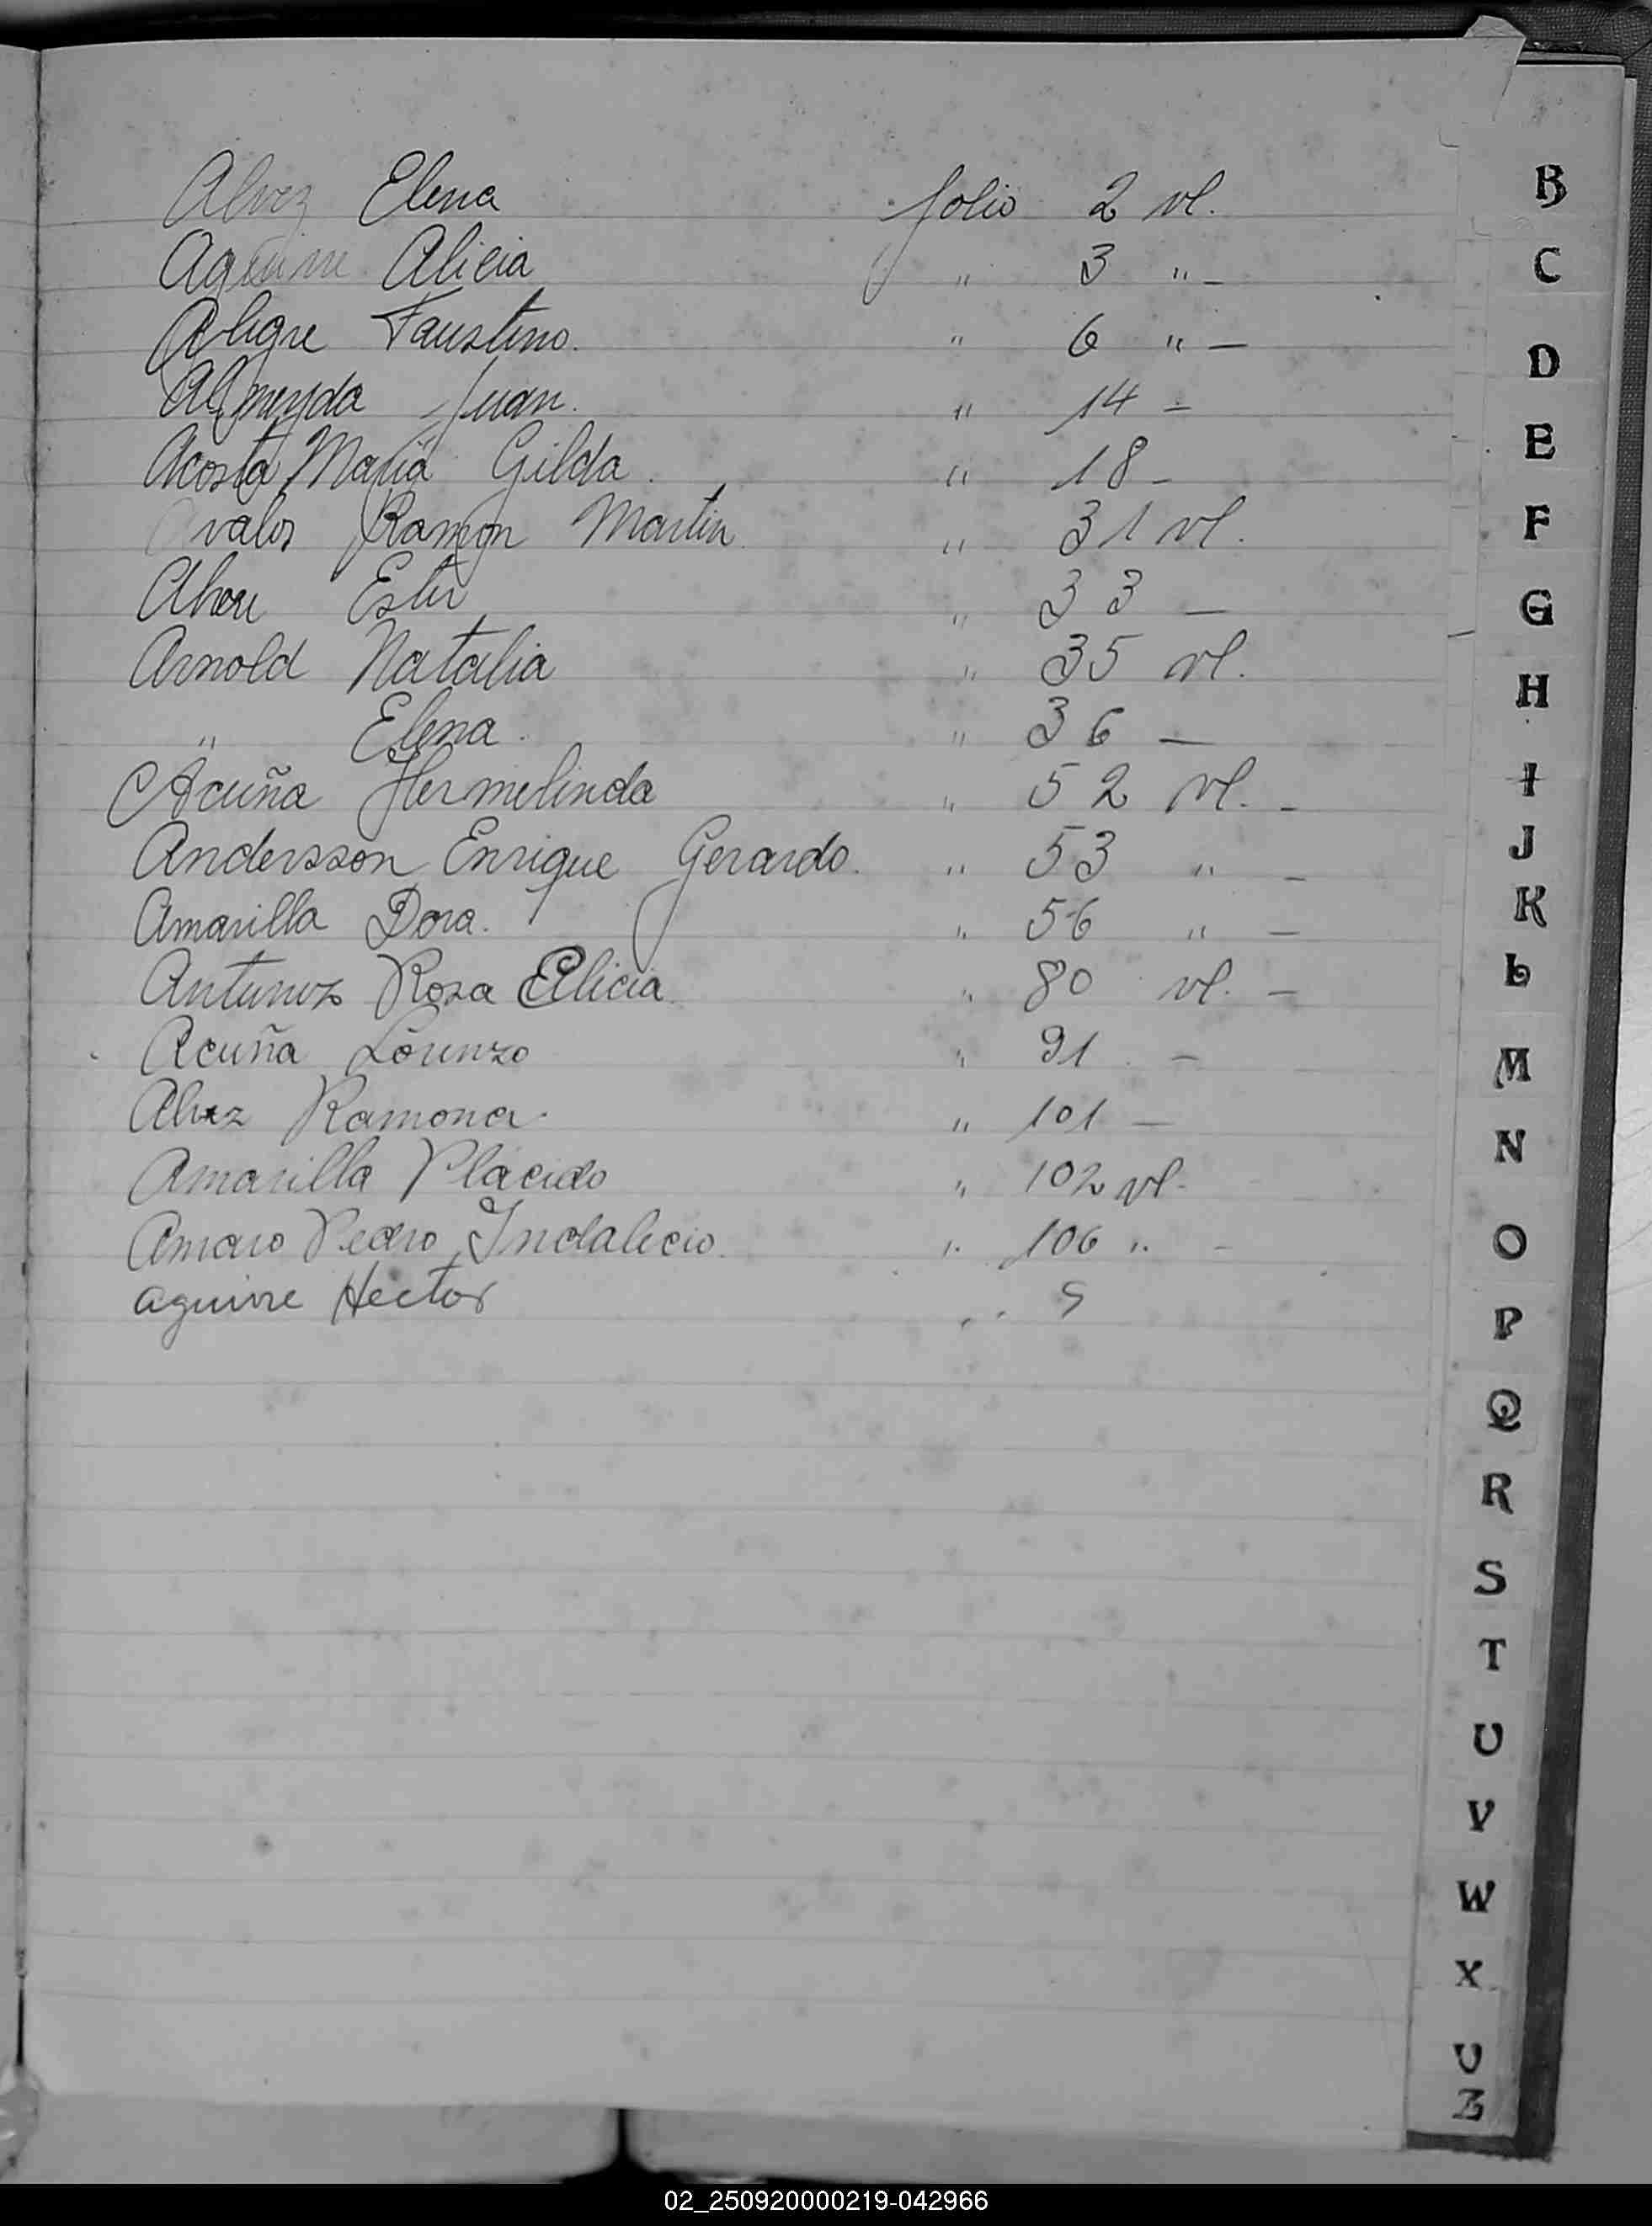 Alvez Elena folio 2 vl.
Aguirre Alicia " 3 " -
Alegre Faustino. " 6 " -
Almeyda Juan. " 14 -
Acosta María Gilda. " 18 -
Avalos Ramón Martin. " 31 vl.
Ester " 33 -
Arnold Natalia " 35 vl.
" Elena. " 36 -
Acuña Hermelinda " 52 vl. -
Andersson Enrique Gerardo. " 53 " -
Amarilla Dora. " 56 " -
Antunez Rosa Alicia " 80 vl. -
Acuña Lorenzo " 91 . -
Alvez Ramona. " 101 -
Amarilla Plácido " 102 vl.
Amaro Pedro Indalecio. " 106 " -
aguirre Hector "
B
C
D
E
F
G
H
I
J
K
L
M
N
O
P
Q
R
S
T
U
V
W
X
Z
02_250920000219-042966